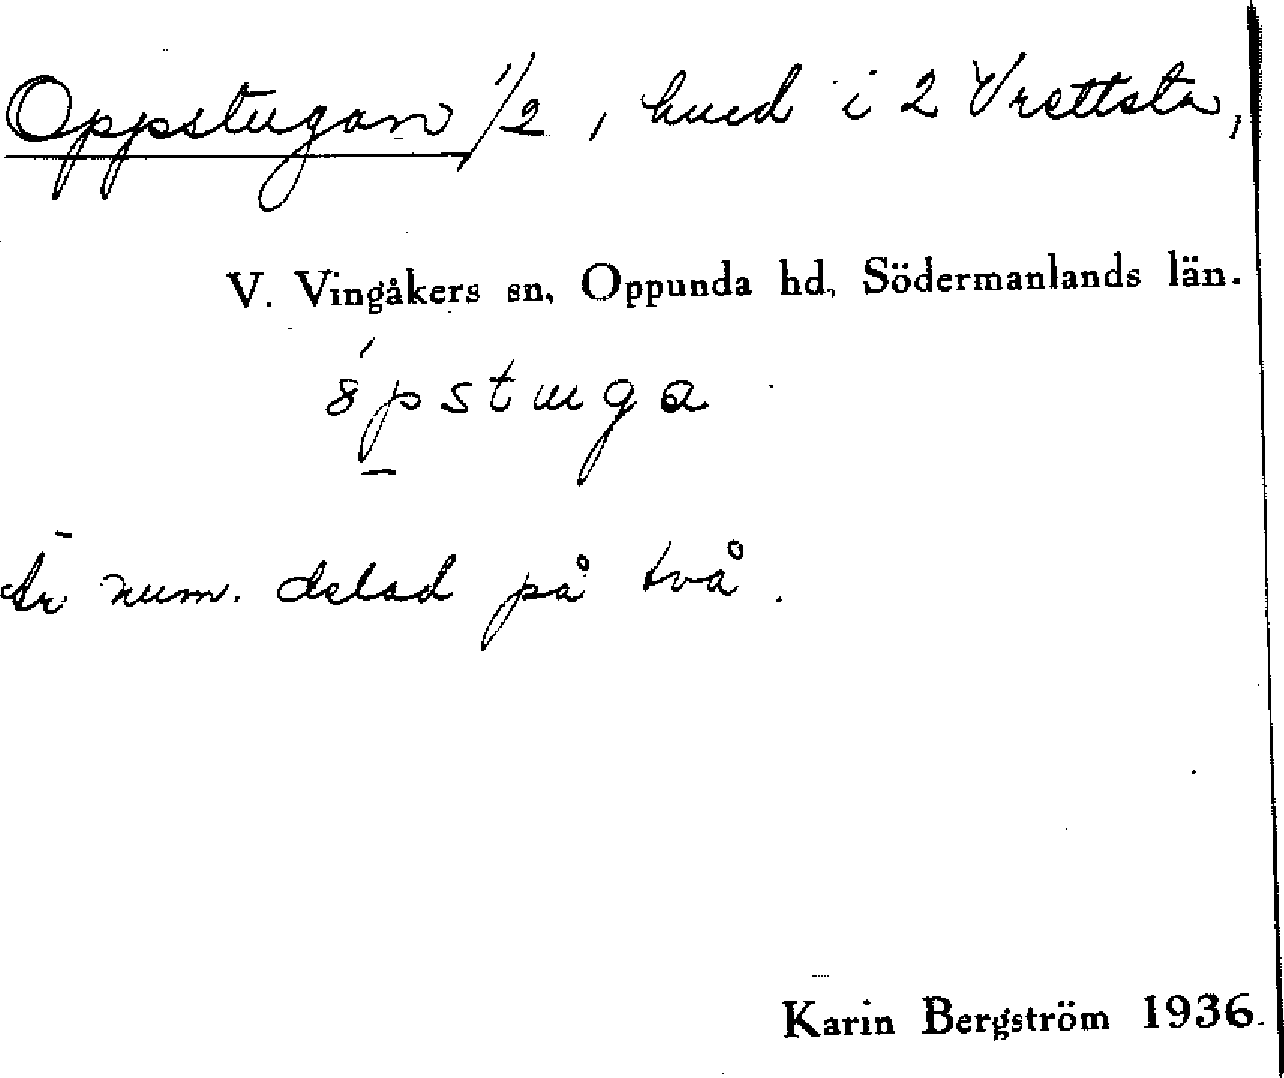 Oppstugan 1/2, hmd i 2 Vrettsta,
V. Vingåkers sn, Oppunda hd, Södermanlands län.
är num. delad på två.
Karin Bergström 1936.